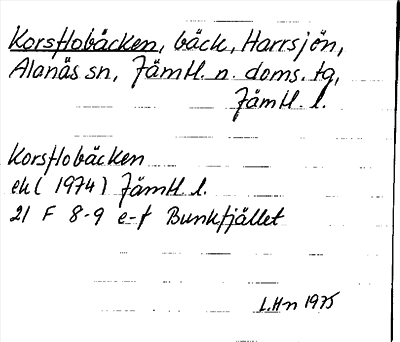 Korsflobäcken, bäck, Harrsjön,
Alanäs sn, Jämtl. n. doms. tg,
Jämtl. l.
Korsflobäcken
ek ( 1974) Jämtl l.
21 F 8-9 e-f Bunkfjället
L.Hn 1975